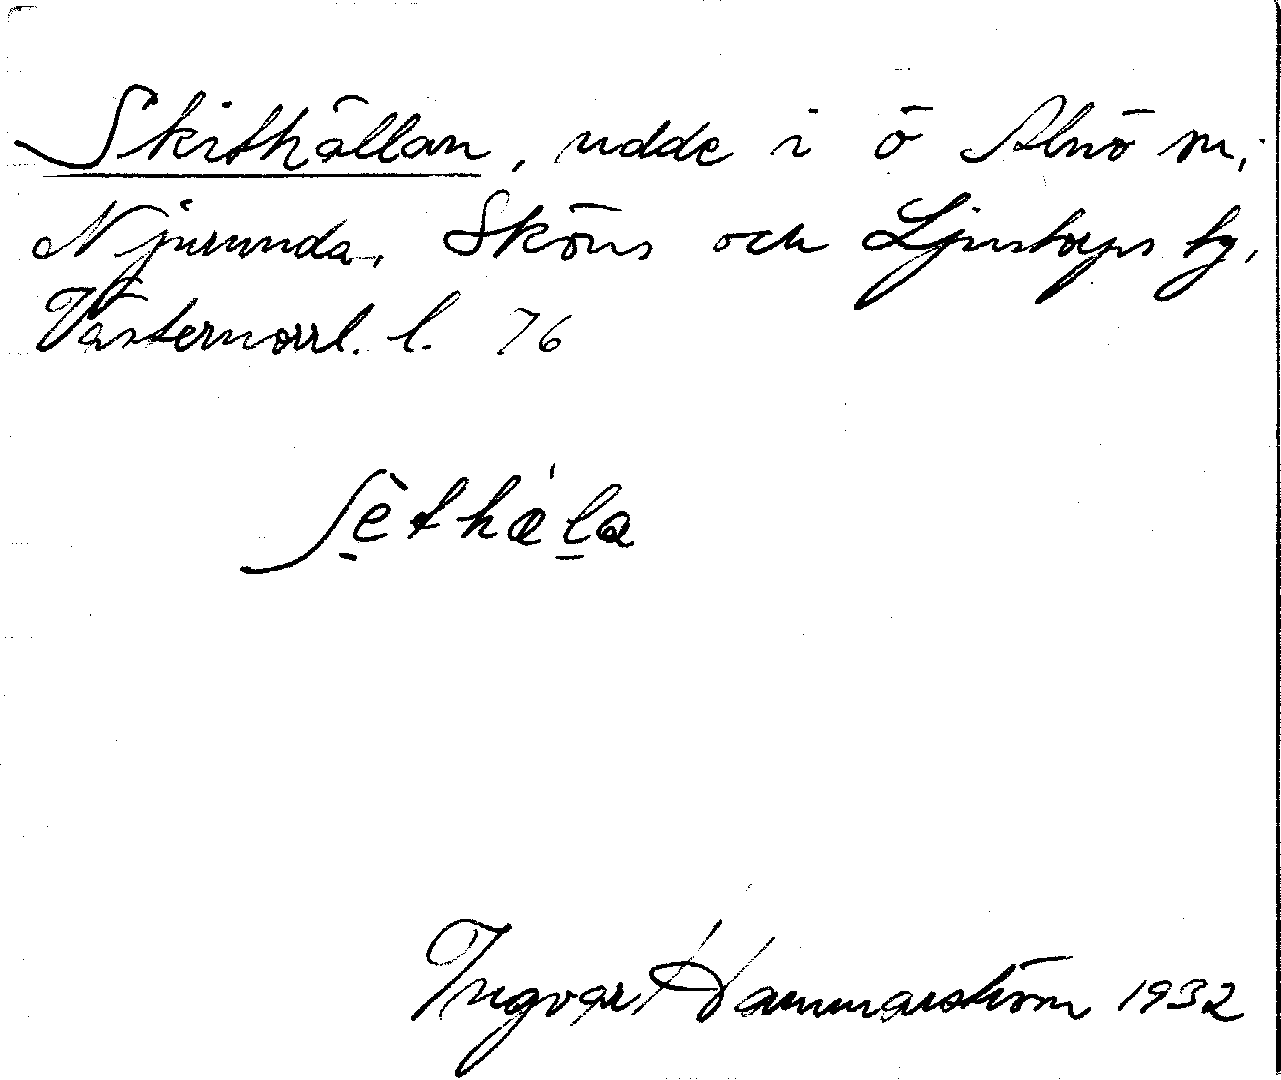 Skithällan, udde i ö Alnö sn,
Njurunda, Sköns och Ljustorps tg,
Västernorrl. l. 76
ʃè̱thæ'l̲a
Ingvar Hammarström 1932